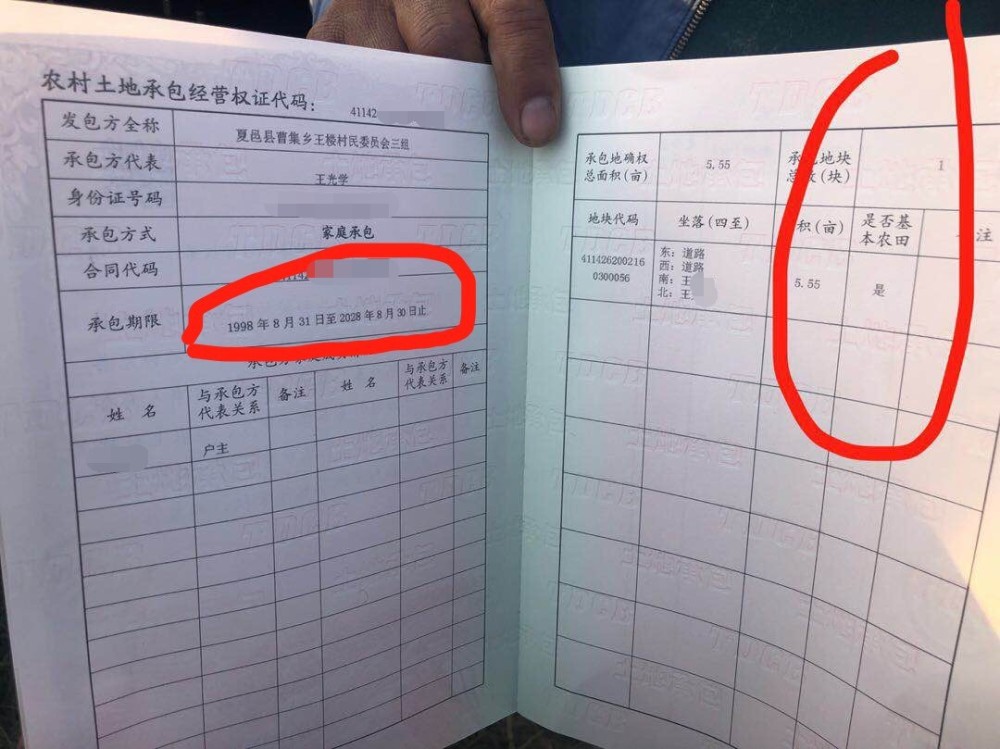 农村土地承包经营权证代码： 41142
发包方全称 夏邑县曹集乡王楼村民委员会三组
承包方代表 王光学
身份证号码
承包方式 家庭承包
合同代码
承包期限 1998年8月31日至2028年8月30日止
姓 名 与承包方代表关系 备注 姓 名 与承包方代表关系 备注
户主
承包地确权总面积(亩) 5.55 承包地块总数(块) 1
地块代码 坐落(四至) 积(亩) 是否基本农田 注
4114262002160300056 东：道路 5.55 是
西：道路
南：王
北：王